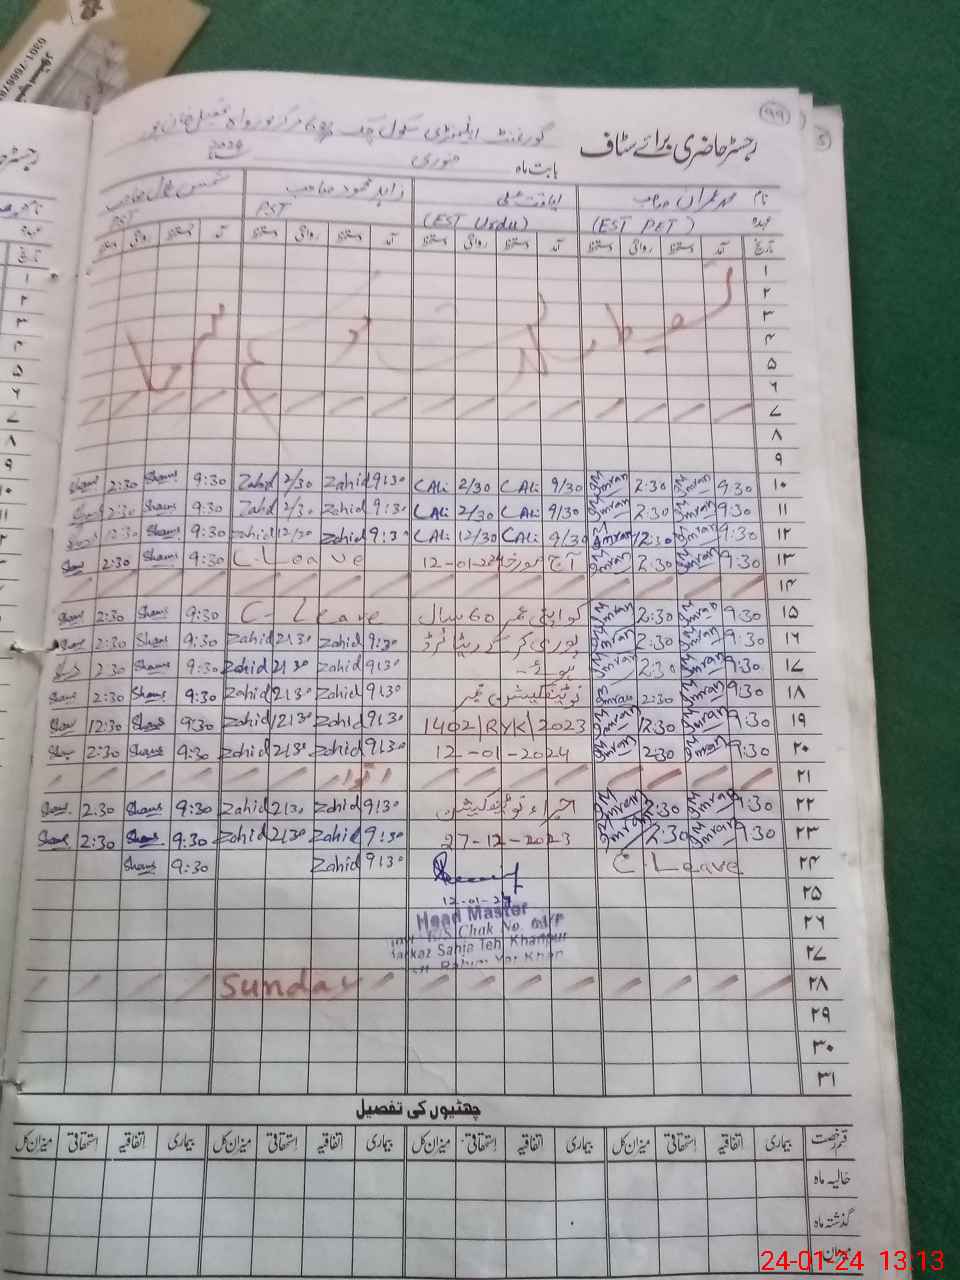 0301-7666
۹۹
رجسٹر حاضری برائے سٹاف
گورنمنٹ ایلیمنٹری سکول چک
بابت ماہ جنوری 2024
نام محمد عمران صاحب لیاقت علی زاہد محمود صاحب شمس
عہدہ (EST PET) (EST Urdu) PST PST
تاریخ آمد دستخط روانگی دستخط آمد دستخط روانگی دستخط آمد دستخط روانگی دستخط آمد دستخط روانگی دستخط
۱
۲
۳
۴
۵
۶
۷
۸
۹
۱۰ 9:30 M Imran 2:30 M Imran 9/30 CAli 2/30 CAli 9:30 Zahid 2/30 Zahid 9:30 Shams 2:30 Shams
۱۱ 9:30 M Imran 2:30 M Imran 9/30 CAli 2/30 CAli 9:30 Zahid 2/30 Zahid 9:30 Shams 2:30 Shams
۱۲ 9:30 M Imran 12:30 M Imran 9/30 CAli 12/30 CAli 9:30 Zahid 12/30 Zahid 9:30 Shams 12:30
۱۳ 9:30 M Imran 2:30 M Imran آج مورخہ 12-01-2024 C-Leave 9:30 Shams 2:30 Shams
۱۴
۱۵ 9:30 M Imran 2:30 M Imran کو اپنی عمر 60 سال C-Leave 9:30 Shams 2:30 Shams
۱۶ 9:30 M Imran 2:30 M Imran پوری کر کے ریٹائرڈ 9:30 Zahid 2:30 Zahid 9:30 Shams 2:30 Shams
۱۷ 9:30 M Imran 2:30 M Imran ہوئے۔ 9:30 Zahid 2:30 Zahid 9:30 Shams 2:30
۱۸ 9:30 M Imran 2:30 M Imran نوٹیفکیشن نمبر 9:30 Zahid 2:30 Zahid 9:30 Shams 2:30 Shams
۱۹ 9:30 M Imran 12:30 M Imran 1402/RYK/2023 9:30 Zahid 12:30 Zahid 9:30 Shams 12:30 Shams
۲۰ 9:30 M Imran 2:30 M Imran 12-01-2024 9:30 Zahid 2:30 Zahid 9:30 Shams 2:30 Shams
۲۱ اتوار
۲۲ 9:30 M Imran 2:30 M Imran اجراء نوٹیفکیشن 9:30 Zahid 2:30 Zahid 9:30 Shams 2:30 Shams
۲۳ 9:30 M Imran 2:30 M Imran 27-12-2023 9:30 Zahid 2:30 Zahid 9:30 Shams 2:30 Shams
۲۴ C-Leave 9:30 Zahid 9:30 Shams
۲۵ 12-01-24
Head Master
۲۶ E/S Chak No.
۲۷ Markaz Sahja Teh. Khanpur
Rahim Yar Khan
۲۸ Sunday
۲۹
۳۰
۳۱
چھٹیوں کی تفصیل
قسم رخصت بیماری اتفاقیہ استحقاقی میزان کل بیماری اتفاقیہ استحقاقی میزان کل بیماری اتفاقیہ استحقاقی میزان کل بیماری اتفاقیہ استحقاقی میزان کل
حالیہ ماہ
گذشتہ ماہ
میزان
24-01-24 13:13